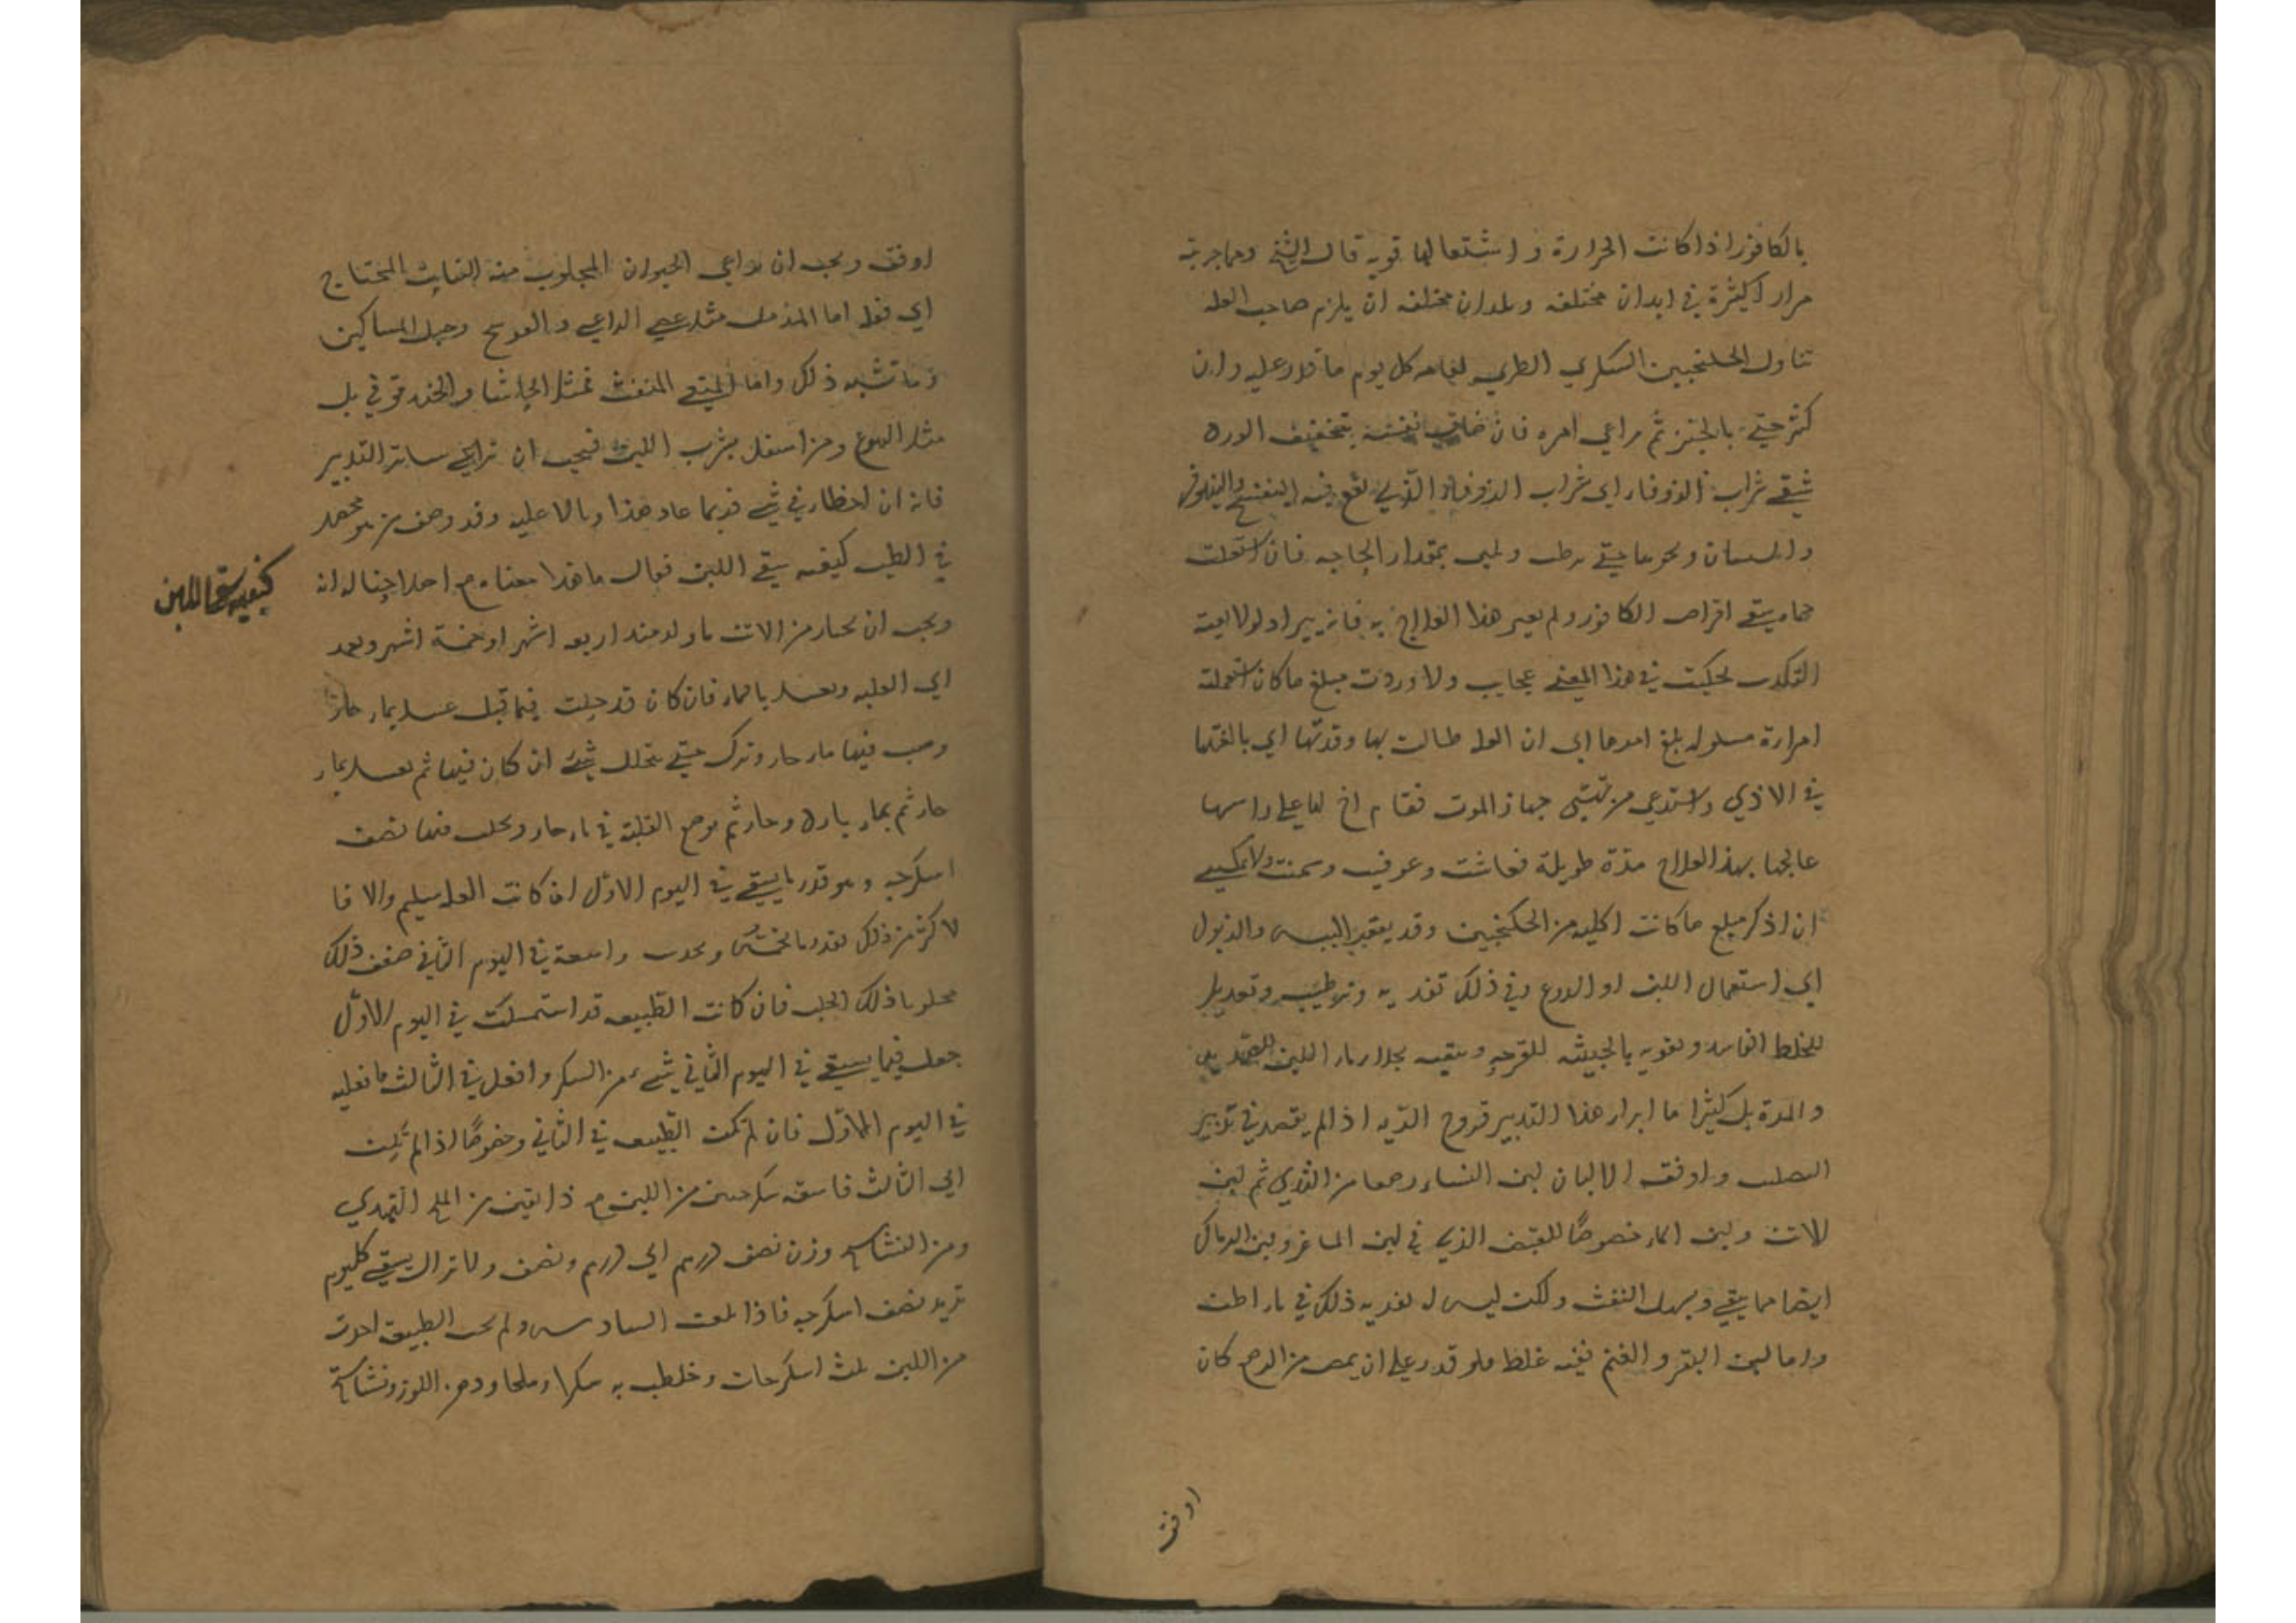 بالكافور اذا كانت الحرارة و اشتعالها قويه قال الشيخ ومما جربته
مرارا كثيرة في ابدان مختلفه و بلدان مختلفه ان يلزم صاحب العله
تناول الجلنجبين السكري الطري لعامه كل يوم ما قدر عليه وان
كثر حتي بالخبز ثم يراعي امره فان ضاق نفسه بتخفيف الورد
سقي شراب الزوفا اي شراب الزوفا الذي يقع فيه البنفسج والنيلوفر
و نحوهما حتي بمقدار الحاجه فان اشتعلت
حماه سقي اقراص الكافور ولم يغير هذا العلاج به فانه يبرا ولولا
التكذب لحكيت في هذا المعني عجايب ولاوردت مبلغ ما كان استعملته
امراة مسلوله بلغ امرها الي ان العله طالت بها
في الاذي واستدعي من تهيئ جهاز الموت فقام اخ لها علي راسها
عالجها بهذا العلاج مدة طويلة فعاشت وعوفيت وسمنت ولا يمكنني
ان اذكر مبلغ ما كانت اكلته من الجلنجبين وقد يفتقر اليبس والذبول
الي استعمال اللبن او الدوغ وفي ذلك تغذيه وترطيب وتعديل
للخلط الفاسد وتغريه بالجبنيه للقرحه وتنقيه بجلاء ماء اللبن للصديد
والمدة بل كثيرا ما ابرا هذا التدبير قروح الريه اذا لم يقصد في تدبير
الصلب واوفق الالبان لبن النساء رضعا من الثدي ثم لبن
الاتن ولبن الماعز خصوصا للقبض الذي في لبن الماعز ولبن الرماك
ايضا مما ينقي ويسهل النفث ولكن ليس له تغذيه ذلك في ما اظن
واما لبن البقر و الغنم ففيه غلظ فلو قدر علي ان يمص من الضرع كان
اوفق
اوفق ويجب ان يراعي الحيوان المحلوب منه النبات المحتاج
اي فيه اما المدمل مثل عصي الراعي والعوسج وحبل المساكين
وما شبه ذلك واما المنقي المنفث فمثل الحاشا والخندقوقي بل
مثل اليتوع ومن اشتغل بشرب اللبن فيجب ان يراعي ساير التدبير
فانه ان اخطا في شيء فربما عاد هذا وبالا عليه وقد وصف من هو محصل
في الطب كيفيه سقي اللبن فقال ما هذا معناه مع احداثنا له انه
كيفيه سقي اللبن
ويجب ان يختار من الاتن ما ولد منذ اربعه اشهر او خمسة اشهر ويعمد
الي العلبه ويغسل بالماء فان كان قد حلبت فيما قبل غسل بماء حار
وصب فيها ماء حار وترك حتي يتحلل شيء ان كان فيها ثم يغسل بماء
حار ثم بماء بارد وحار ثم يوضع العلبة في ماء حار ويحلب فيها نصف
اسكرجه وهو قدر ما يسقي في اليوم الاول ان كانت المعده سليم والا فا
لاكثر من ذلك بقدر ما واسقه في اليوم الثاني ضعف ذلك
محلوبا ذلك الحلب فان كانت الطبيعه قد استمسكت في اليوم الاول
جعل فيما يسقي في اليوم الثاني شيء من السكر وافعل في الثالث ما فعلته
في اليوم الاول فان لم تكن الطبيعه في الثاني وخصوصا اذا لم تلن
الي الثالث فاسقه سكرجتين من اللبن مع دانقين من الملح الهندي
ومن النشاستج وزن نصف درهم الي درهم ونصف ولا تزال تسقي كل يوم
تزيد نصف اسكرجه فاذا بلغت السادس ولم تجب الطبيعه اخذت
من اللبن ثلث اسكرجات وخلطت به سكرا وملحا ودهن اللوز ونشاستج